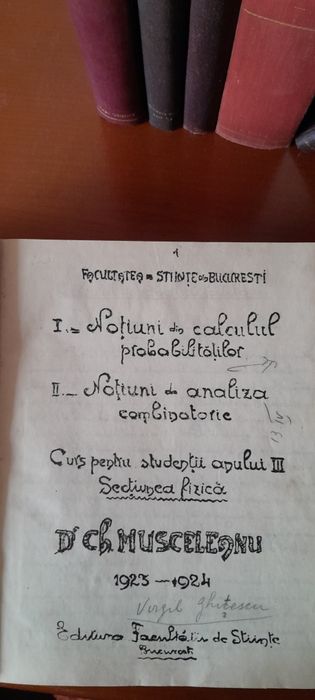 FACULTATEA DE STIINȚE DIN BUCUREȘTI
I.- Noțiuni din calculul
probabilităților
II.- Noțiuni de analiza
combinatorie
Curs pentru studenții anului III
Secțiunea fizică
Dr Ch. MUSCELEANU
1923-1924
Virgil Ghițescu
Editura Facultății de Stiințe
București